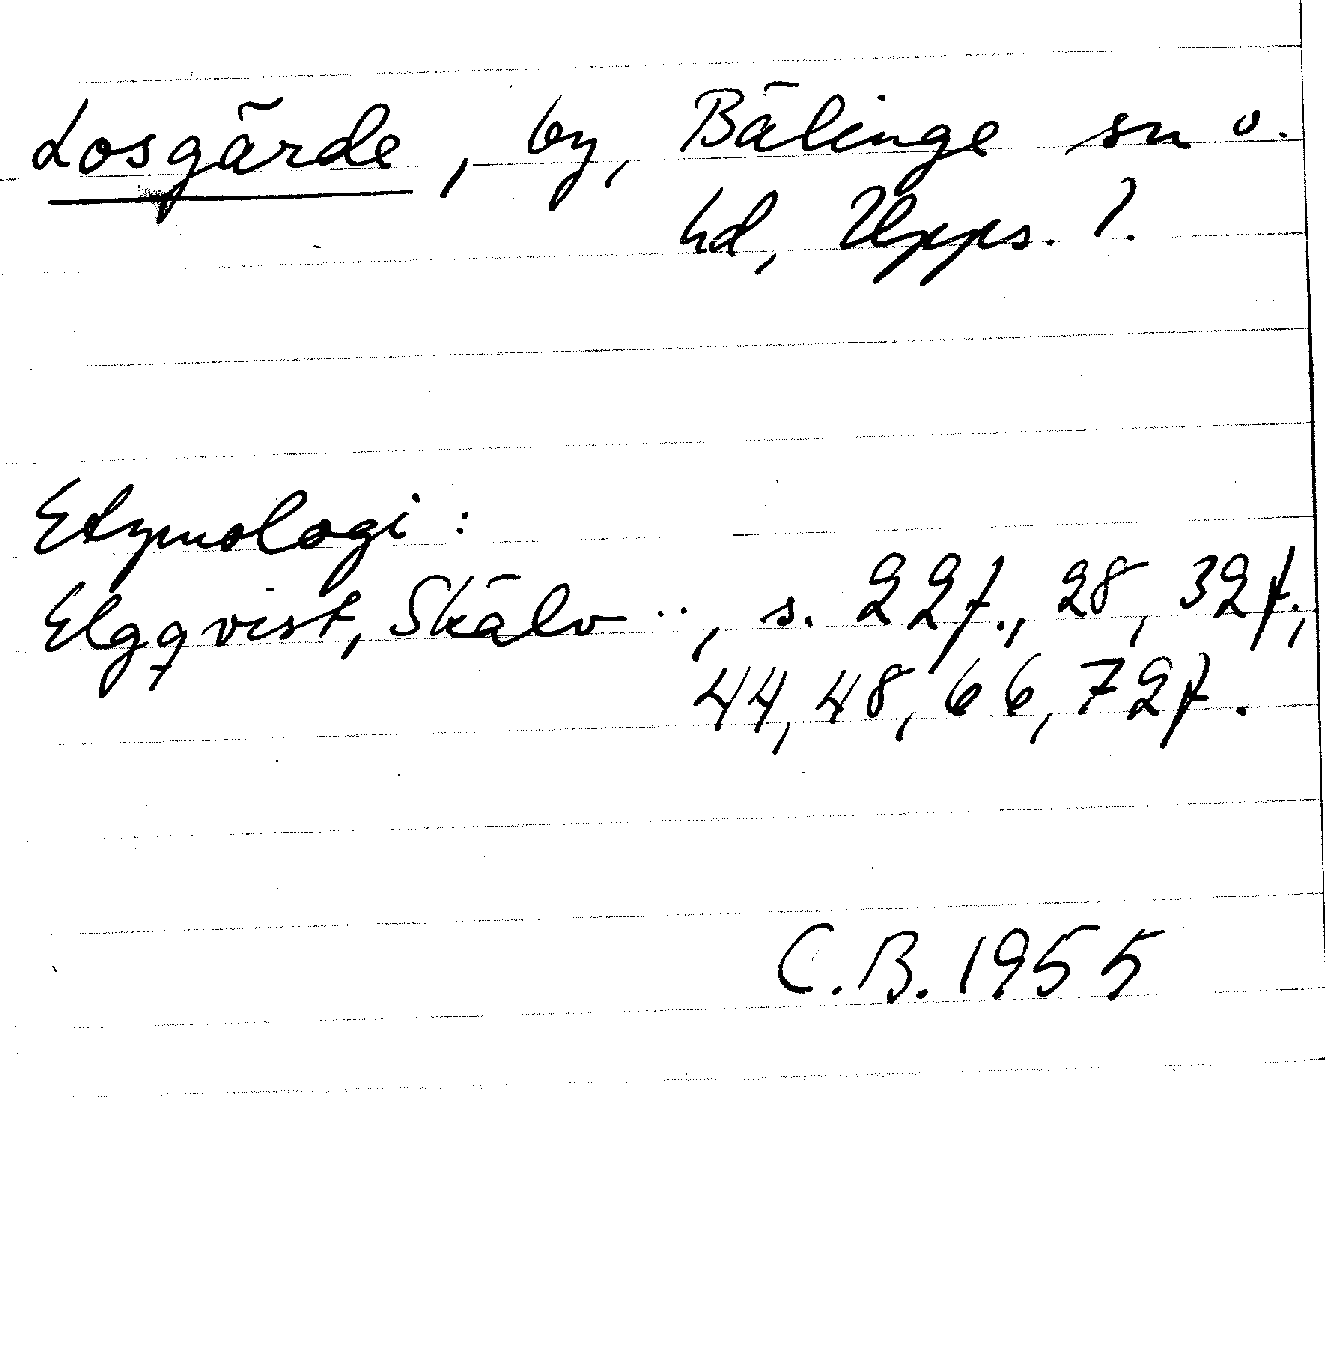 Losgärde, by, Bälinge sn o.
hd, Upps. l.
Etymologi:
Elgqvist, Skälv .., s. 22f., 28, 32f.,
44, 48, 66, 72f.
C.B. 1955